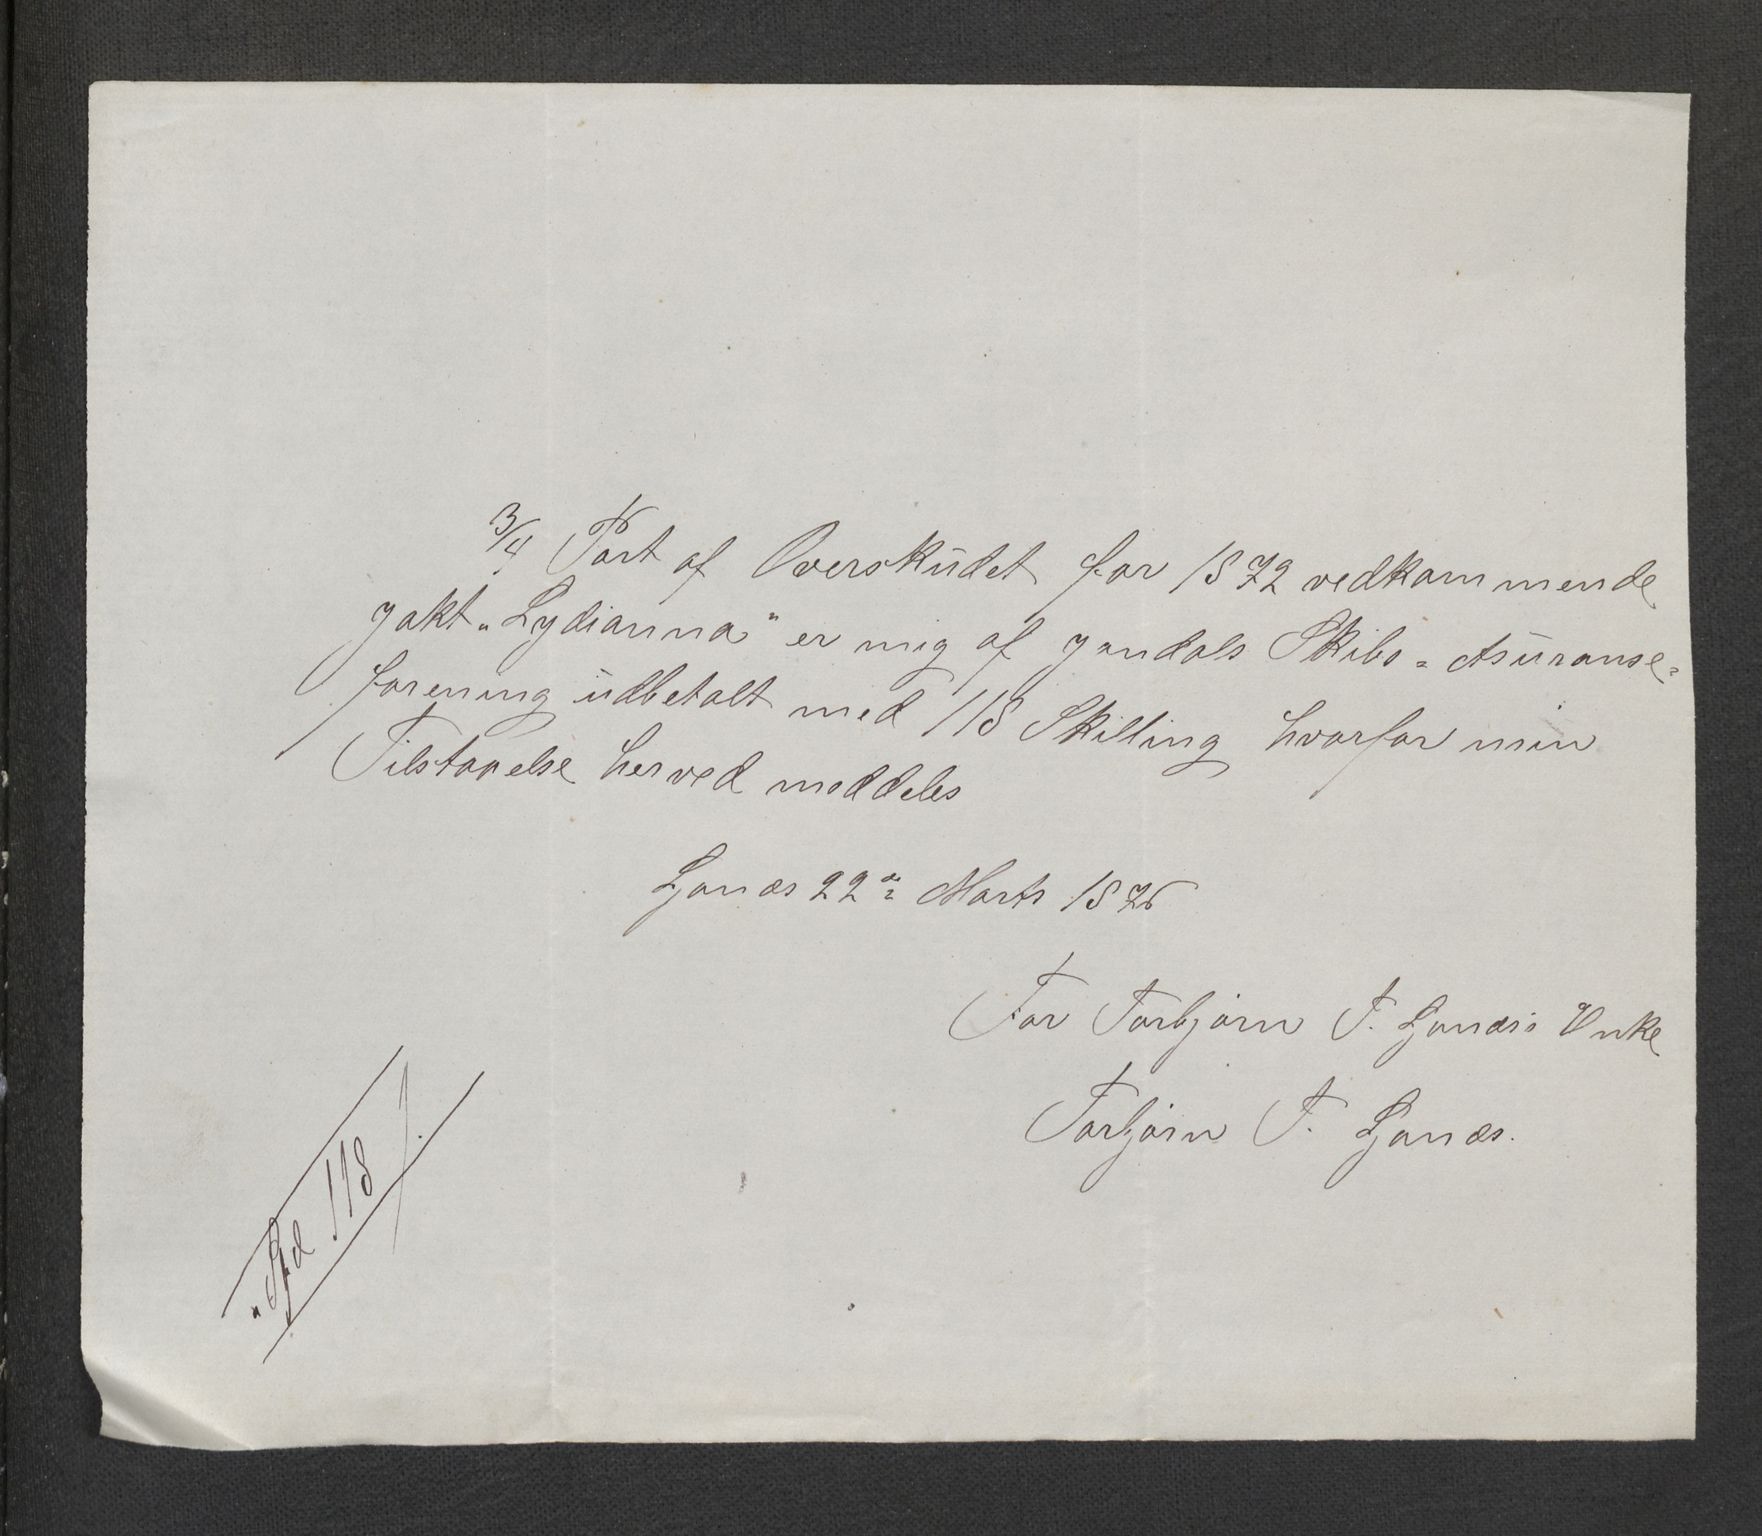 3/4 Part af Overskudet for 1872 vedkommende
Jakt „Lydianna" er mig af Jondals Skibs-Asuranse-
forening udbetalt med 118 Skilling hvorfor min
Tilstaaelse herved meddeles
Ljonæs 22de Marts 1876
For Torbjørn T. Ljonæs's Enke
Torbjørn T. Ljonæs.
„ Spd 118 /.